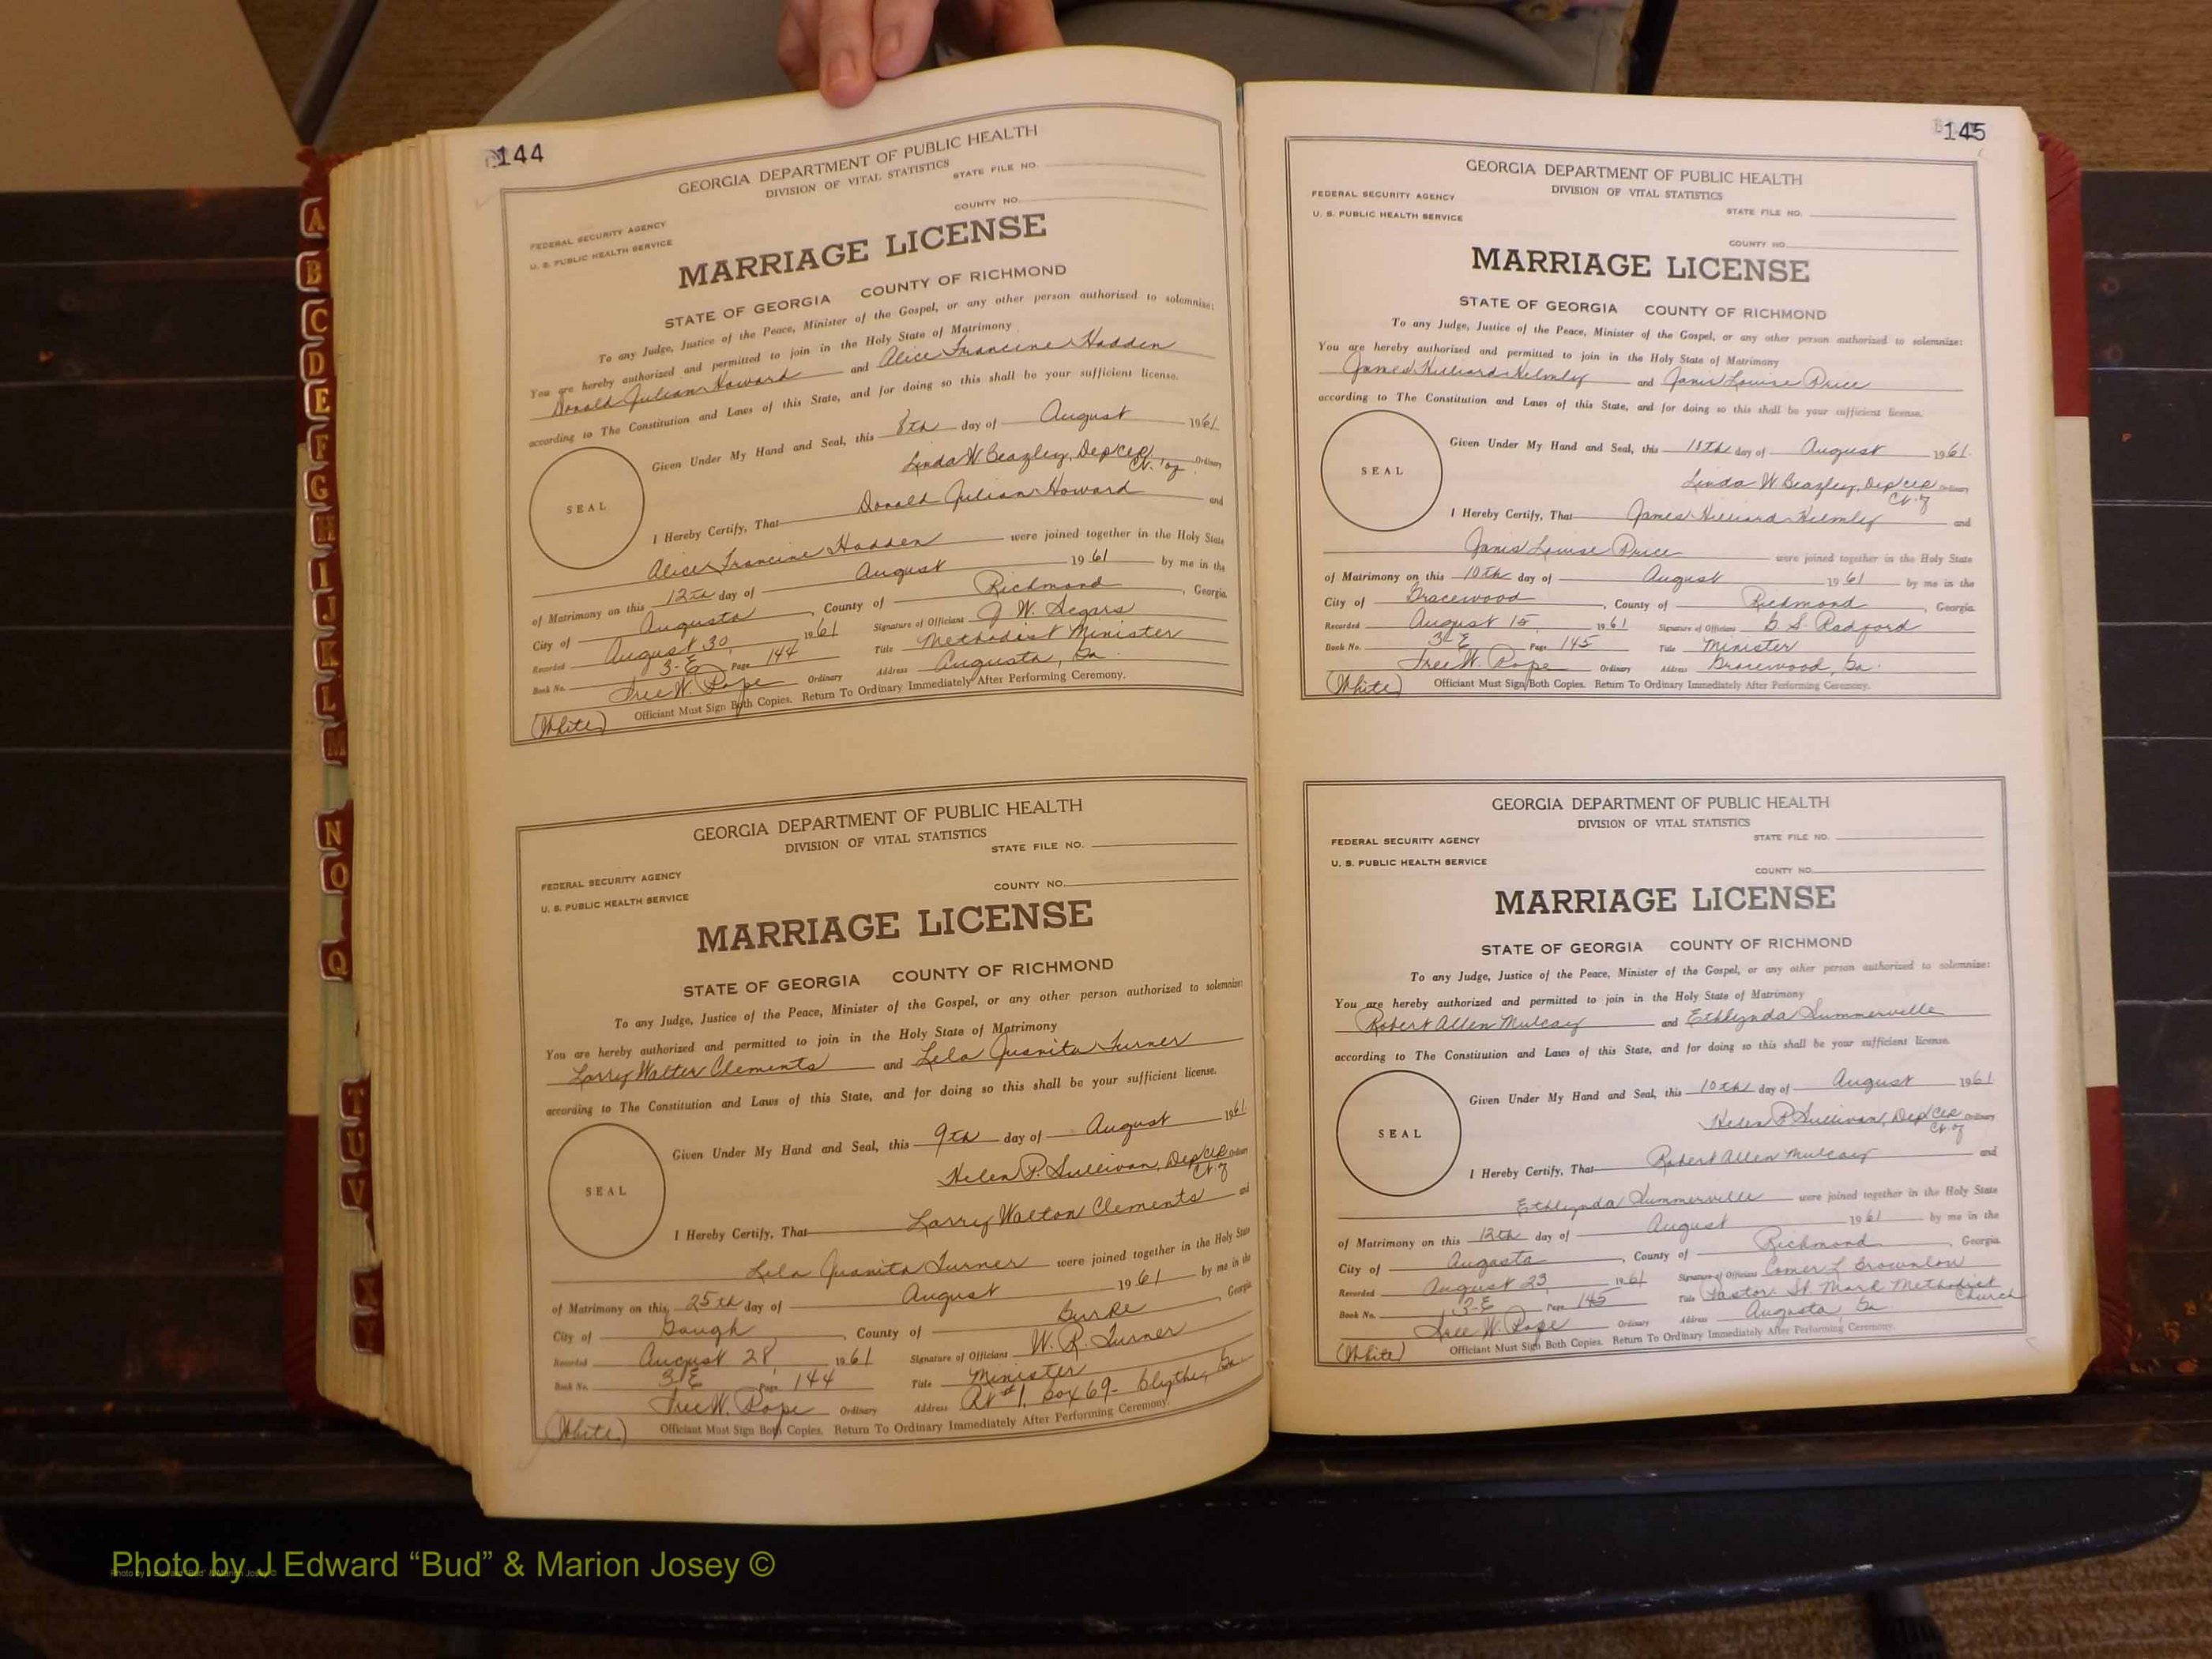 144
GEORGIA DEPARTMENT OF PUBLIC HEALTH
DIVISION OF VITAL STATISTICS
STATE FILE NO.
FEDERAL SECURITY AGENCY
COUNTY NO.
U. S. PUBLIC HEALTH SERVICE
MARRIAGE LICENSE
STATE OF GEORGIA COUNTY OF RICHMOND
To any Judge, Justice of the Peace, Minister of the Gospel, or any other person authorized to solemnize:
You are hereby authorized and permitted to join in the Holy State of Matrimony
Donald Julian Howard and Alice Francine Hadden
according to The Constitution and Laws of this State, and for doing so this shall be your sufficient license.
SEAL
Given Under My Hand and Seal, this 8th day of August 1961
Linda W Beazley, Dep Clk Ordinary
Ct.
I Hereby Certify, That Donald Julian Howard and
Alice Francine Hadden were joined together in the Holy State
of Matrimony on this 12th day of August 1961 by me in the
City of Augusta, County of Richmond, Georgia
Recorded August 30, 1961 Signature of Officiant J W. Segars
Book No. 3-E Page 144 Title Methodist Minister
Tree W. Pope Ordinary Address Augusta, Ga.
(White) Officiant Must Sign Both Copies. Return To Ordinary Immediately After Performing Ceremony.
GEORGIA DEPARTMENT OF PUBLIC HEALTH
DIVISION OF VITAL STATISTICS
STATE FILE NO.
FEDERAL SECURITY AGENCY
COUNTY NO.
U. S. PUBLIC HEALTH SERVICE
MARRIAGE LICENSE
STATE OF GEORGIA COUNTY OF RICHMOND
To any Judge, Justice of the Peace, Minister of the Gospel, or any other person authorized to solemnize:
You are hereby authorized and permitted to join in the Holy State of Matrimony
Larry Walter Clements and Lela Juanita Turner
according to The Constitution and Laws of this State, and for doing so this shall be your sufficient license.
SEAL
Given Under My Hand and Seal, this 9th day of August 1961
Helen P. Sullivan, Dep Clk Ordinary
Ct.
I Hereby Certify, That Larry Walton Clements and
Lela Juanita Turner were joined together in the Holy State
of Matrimony on this 25th day of August 1961 by me in the
City of Gough, County of Burke, Georgia
Recorded August 28, 1961 Signature of Officiant W. R. Turner
Book No. 3-E Page 144 Title Minister
Tree W. Pope Ordinary Address Rt #1, Box 69- Blythe, Ga.
(White) Officiant Must Sign Both Copies. Return To Ordinary Immediately After Performing Ceremony.
145
GEORGIA DEPARTMENT OF PUBLIC HEALTH
DIVISION OF VITAL STATISTICS
FEDERAL SECURITY AGENCY
STATE FILE NO.
U. S. PUBLIC HEALTH SERVICE
COUNTY NO.
MARRIAGE LICENSE
STATE OF GEORGIA COUNTY OF RICHMOND
To any Judge, Justice of the Peace, Minister of the Gospel, or any other person authorized to solemnize:
You are hereby authorized and permitted to join in the Holy State of Matrimony
James Hilliard Helmley and Janis Louise Price
according to The Constitution and Laws of this State, and for doing so this shall be your sufficient license.
SEAL
Given Under My Hand and Seal, this 10th day of August 1961
Linda W Beazley, Dep Clk Ordinary
Ct.
I Hereby Certify, That James Hilliard Helmley and
Janis Louise Price were joined together in the Holy State
of Matrimony on this 10th day of August 1961 by me in the
City of Gracewood, County of Richmond, Georgia
Recorded August 15, 1961 Signature of Officiant G. S. Radford
Book No. 3-E Page 145 Title Minister
Tree W. Pope Ordinary Address Gracewood, Ga.
(White) Officiant Must Sign Both Copies. Return To Ordinary Immediately After Performing Ceremony.
GEORGIA DEPARTMENT OF PUBLIC HEALTH
DIVISION OF VITAL STATISTICS
FEDERAL SECURITY AGENCY
STATE FILE NO.
U. S. PUBLIC HEALTH SERVICE
COUNTY NO.
MARRIAGE LICENSE
STATE OF GEORGIA COUNTY OF RICHMOND
To any Judge, Justice of the Peace, Minister of the Gospel, or any other person authorized to solemnize:
You are hereby authorized and permitted to join in the Holy State of Matrimony
Robert Allen Mulcay and Ethlynda Summerville
according to The Constitution and Laws of this State, and for doing so this shall be your sufficient license.
SEAL
Given Under My Hand and Seal, this 10th day of August 1961
Helen P Sullivan, Dep Clk Ordinary
Ct.
I Hereby Certify, That Robert Allen Mulcay and
Ethlynda Summerville were joined together in the Holy State
of Matrimony on this 12th day of August 1961 by me in the
City of Augusta, County of Richmond, Georgia
Recorded August 23, 1961 Signature of Officiant Comer L Brownlow
Book No. 3-E Page 145 Title Pastor: St. Mark Methodist Church
Tree W. Pope Ordinary Address Augusta, Ga.
(White) Officiant Must Sign Both Copies. Return To Ordinary Immediately After Performing Ceremony.
A
B
C
D
E
F
G
H
I
J
K
L
M
N
O
Q
T
U
V
X
Y
Photo by J Edward “Bud” & Marion Josey ©
Photo by J Edward "Bud" & Marion Josey ©